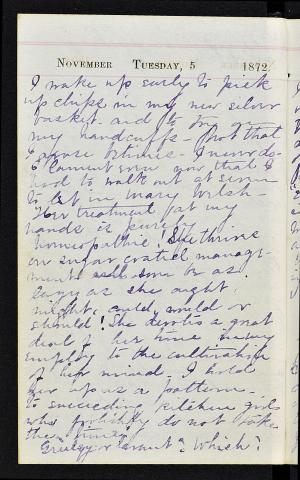 NOVEMBER TUESDAY, 5 1872
I wake up early to pick
up chips in my new silver
basket and to try on
my handcuffs – Not that
I arose betimes. I never do –
I comment now that I
had to walk out at seven
to let in Mary Welsh –
Her treatment at my
hands is purely
homeopathic! She thrives
on sugar coated manage-
ment well some or as
lazy as she ought,
might, could, would or
should! She devotes a great
deal of her time in my
employ to the cultivation
of her mind. I hold
her up as a pattern
to succeeding kitchen girls
who probably do not take
the "Times"
Greeley or Grant? Which?